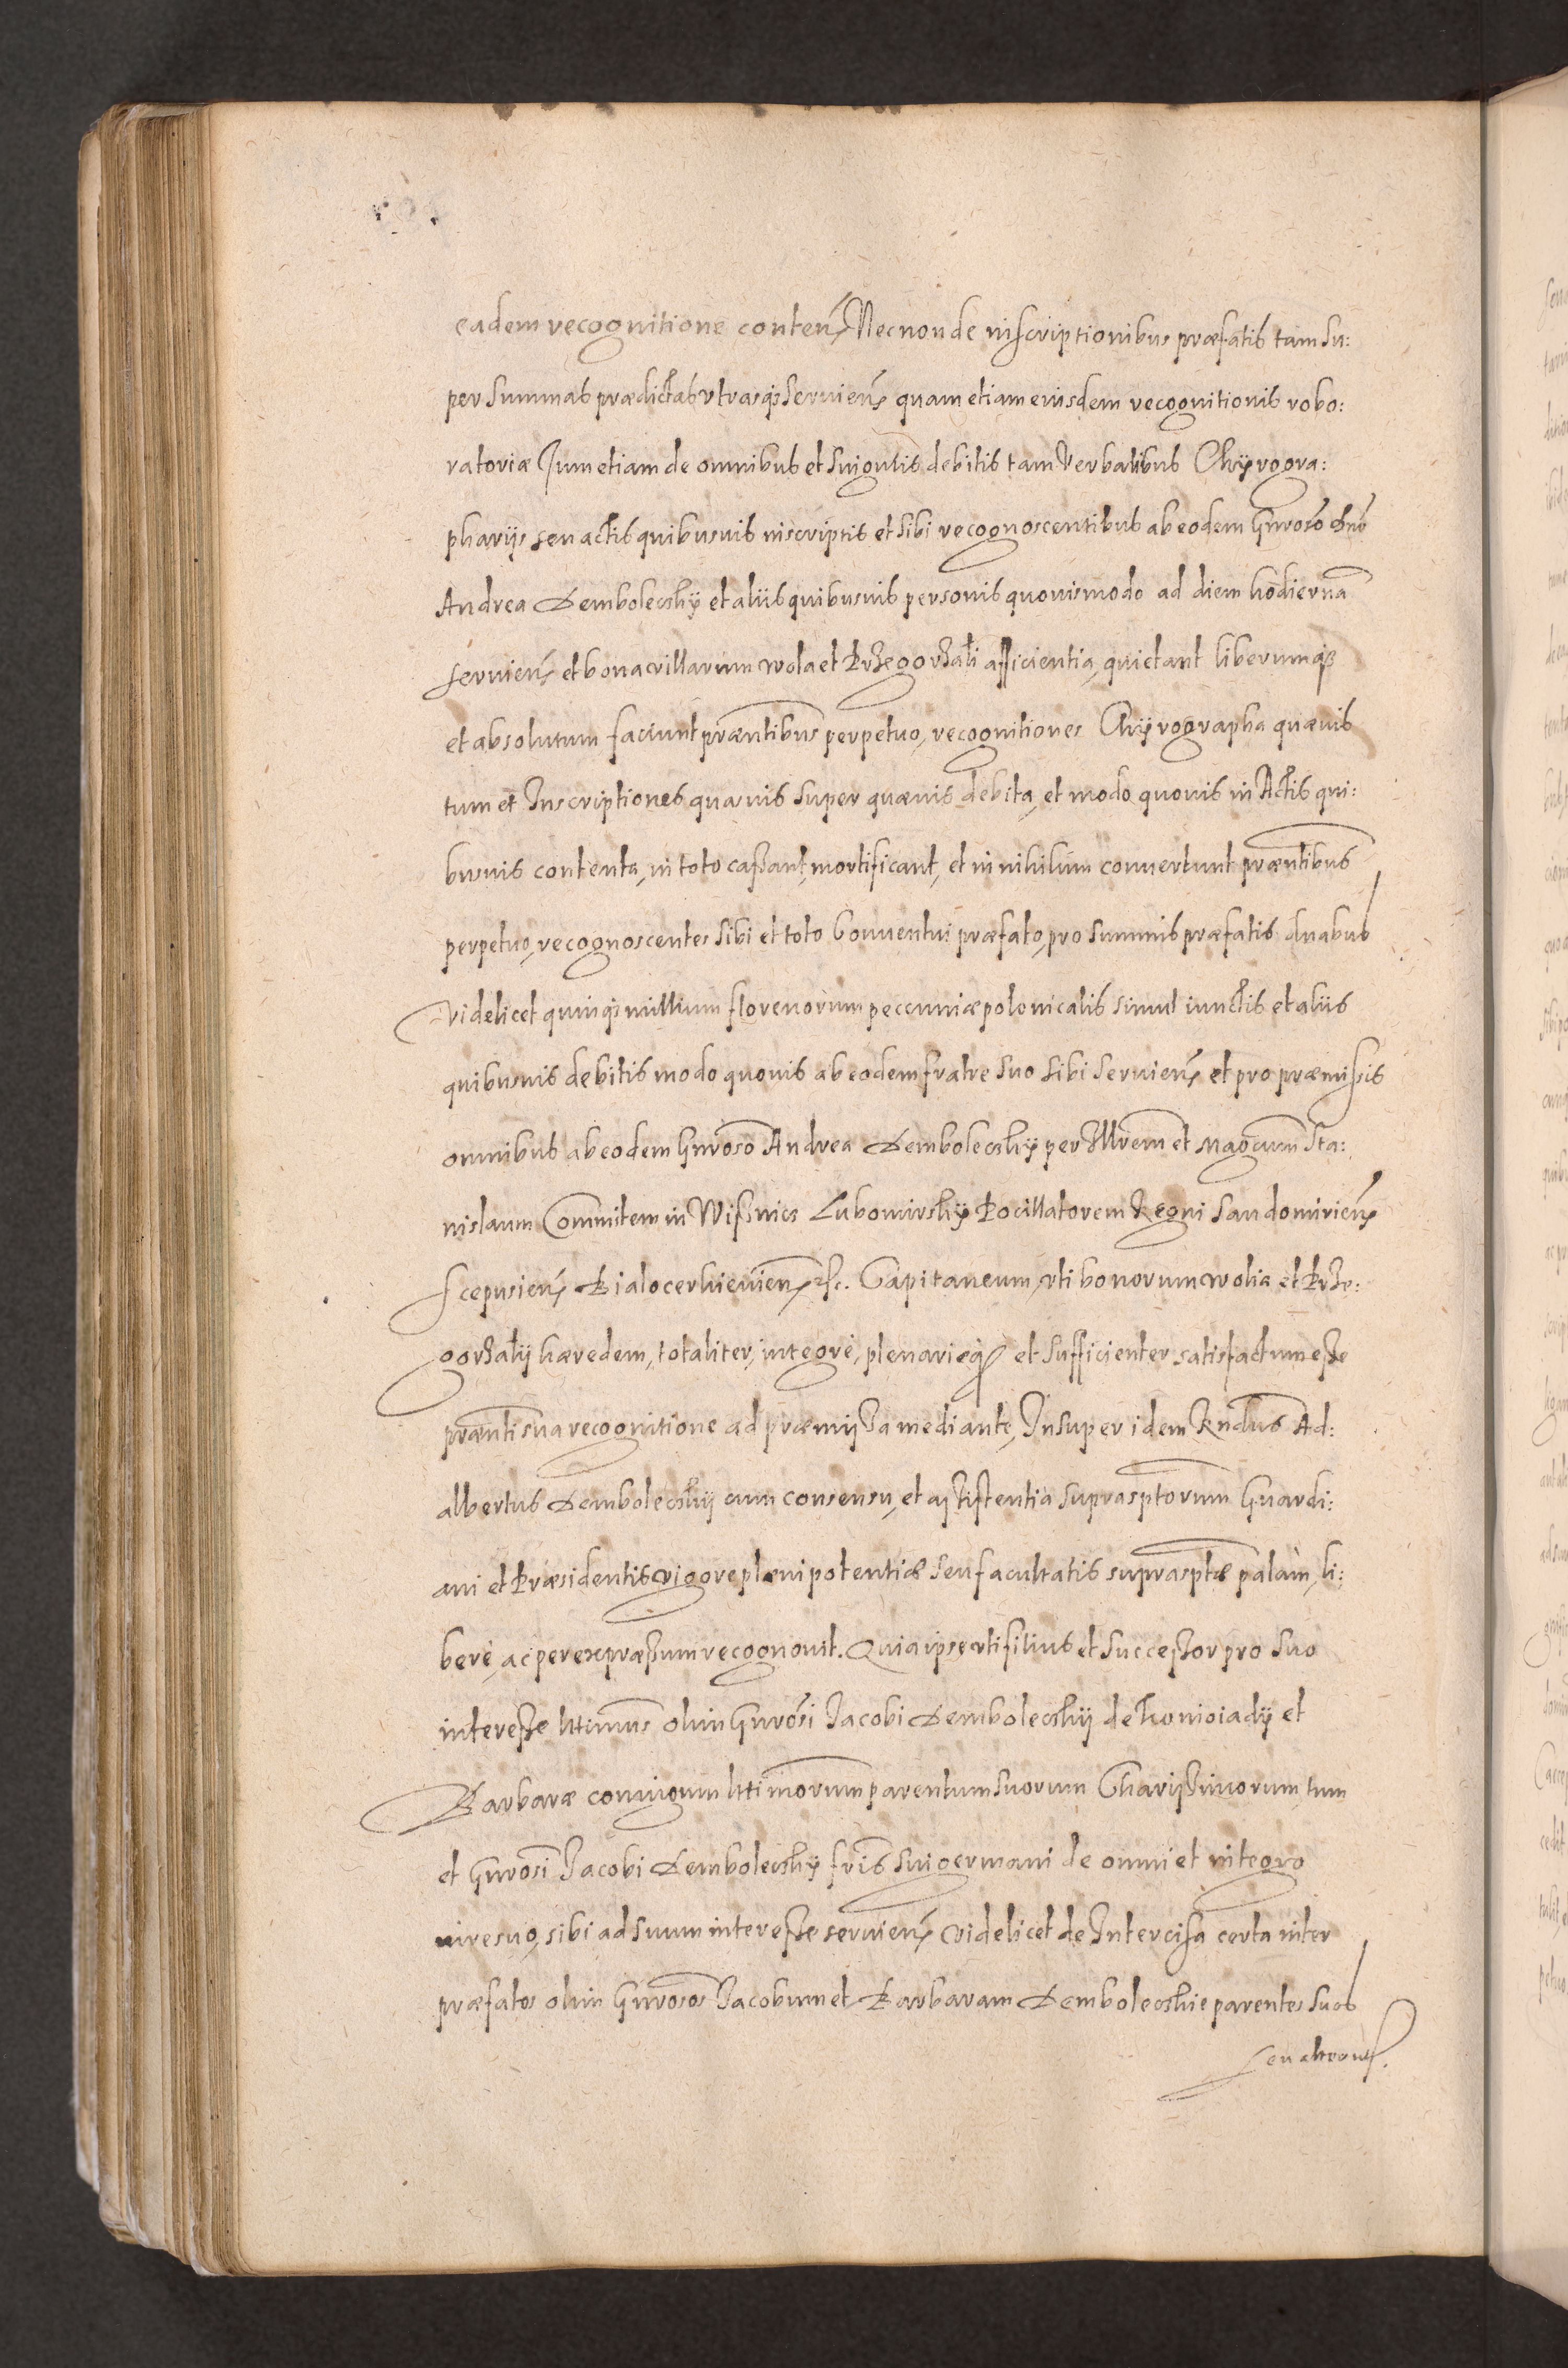 eadem recognitione conteñ, Necnon de inscriptionibus præfatis tam su:
per summas prædictas utrasq́3 servieñ quam etiam eiusdem recognitionis robo:
ratoriæ Tum etiam de omnibus et singulis debitis tam Verbalibus Chyrogra:
pharijs seu actis quibusvis inscriptis et sibi recognoscentibus ab eodem Gnroso dno
Andrea Dembolecsky et aliis quibusvis personis quovismodo ad diem hodiernã
servieñ et bona villarum Wola et Przegorzali afficientia, quietant liberumq3
et absolutum faciunt præntibus perpetuo, recognitiones Chyrographa quævis
tum et Inscriptiones quavis super quævis debita, et modo quovis in Actis qui:
busvis contenta, in toto cassant, mortificant, et in nihilum convertunt præntibus
perpetuo, recognoscentes sibi et toto Conventui præfato, pro summis præfatis duabus
videlicet quinq3 millium florenorum pecuniæ polonicalis simul iunctis et aliis
quibusvis debitis modo quovis ab eodem fratre suo sibi servieñ et pro præmissis
omnibus ab eodem Gnroso Andrea Dembolecsky per Illrem et Magcum Sta:
nislaum Commitem in Wisnics Lubomirsky Pocillatorem Regni Sandomirieñ
Scepusieñ Bialocerkievieñ etc. Capitaneum, uti bonorum Wolia et Prze:
gorzaly hæredem, totaliter, integrè, plenarieq3 et sufficienter satisfactum esse
prænti sua recognitione ad præmissa mediante, Insuper idem Rndus Ad:
albertus Dembolecskij cum consensu, et assistentia suprasptorum Guardi:
ani et Præsidentis vigore plenipotentiæ seu facultatis suprasptæ palàm, li:
berè, ac per expræssum recognovit. Quia ipse uti filius et successor pro suo
interesse lttimus olim Gnrosi Jacobi Dembolecskij de Konioiady et
Barbaræ coniugum lttimorum parentum suorum Charissimorum, tum
et Gnrosi Jacobi Dembolecsky fris sui germani de omni et integro
iure suo, sibi ad suum interesse servieñ videlicet de Intercisa certa inter
præfatos olim Gnrosos Jacobum et Barbaram Dembolecskie parentes suos